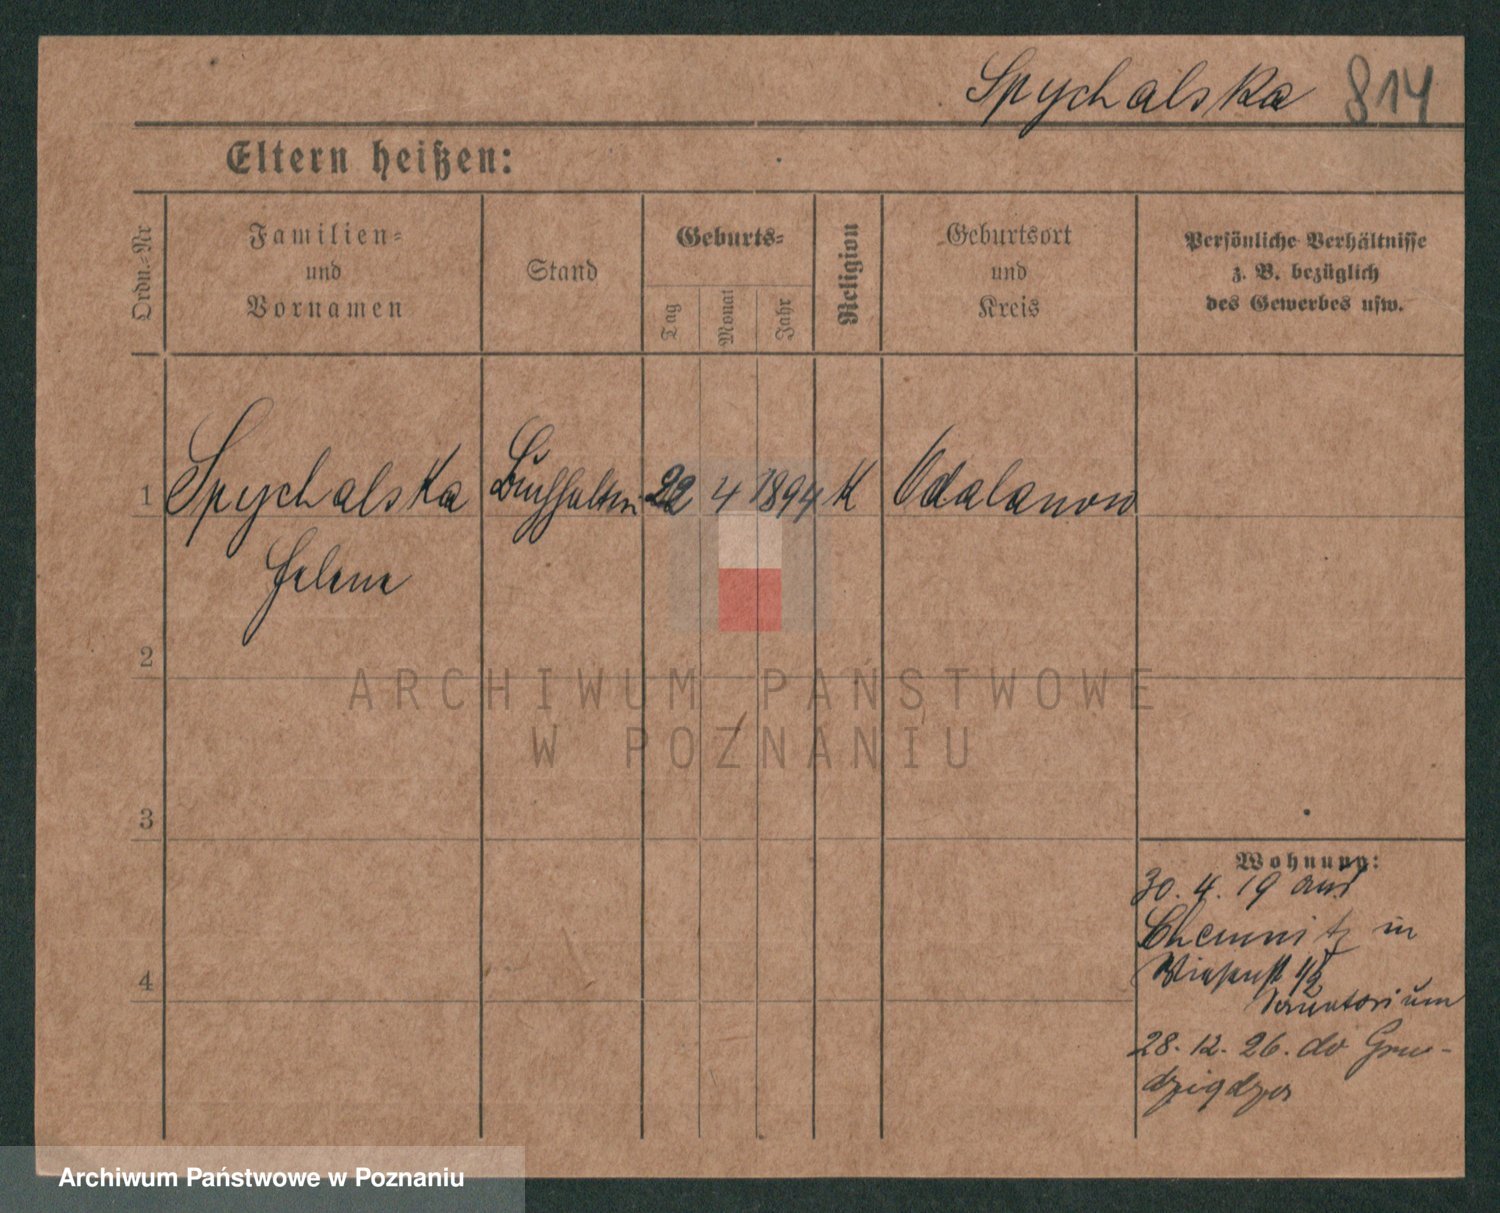 Spychalska 814
Eltern heißen:
Ordn.-Nr
Familien-
und
Vornamen
Stand
Geburts-
Tag
Monat
Jahr
Religion
Geburtsort
und
Kreis
Persönliche Verhältnisse
z. B. bezüglich
des Gewerbes usw.
1 Spychalska Buchhalterin 22 4 1894 K Odalanow
Helene
2
ARCHIWUM PAŃSTWOWE
W POZNANIU
3
Wohnung:
30. 4. 19 aus
Chemnitz in
4
Sanatorium
28. 12. 26. do Gru-
dziądza
Archiwum Państwowe w Poznaniu